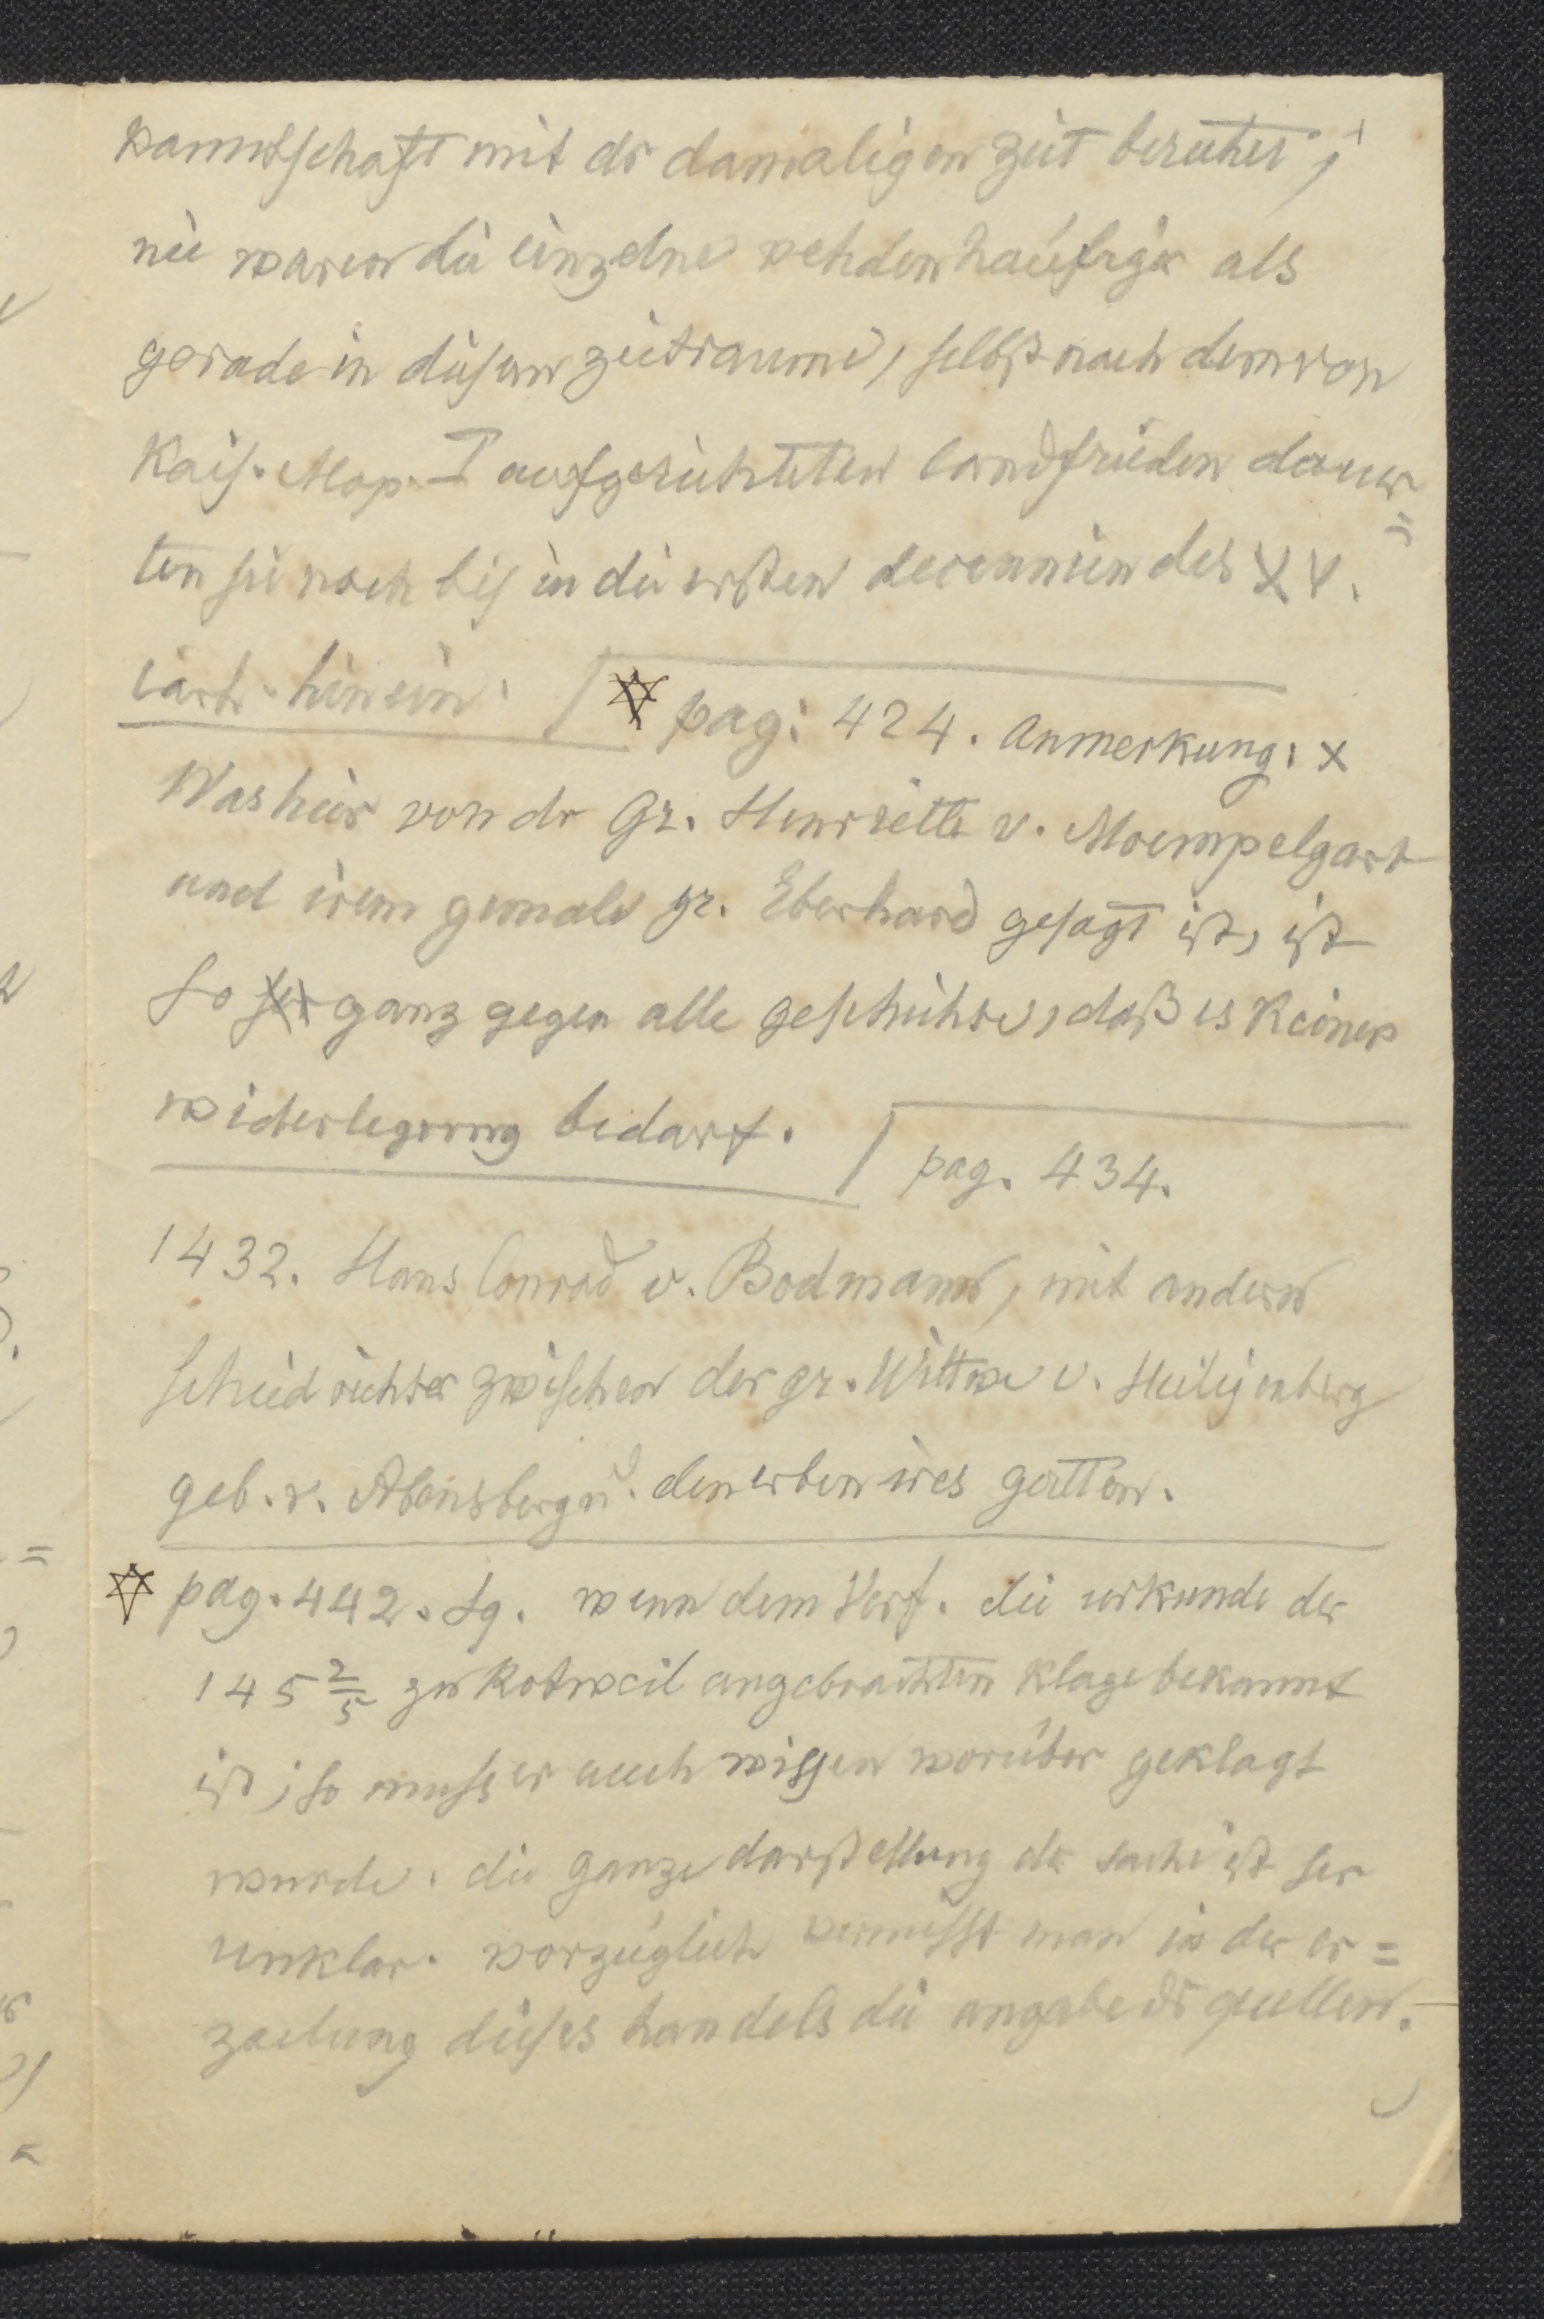 kanntschaft mit dr damaligen zeit beruhet;
nie waren die einzelne vehden haüfiger als
gerade in diesem zeitraume, selbst nach dem von
Kais. Max. I aufgerichteten landfrieden dauer=
ten sie noch bis in die ersten decennien des XV.
iarh. hinein.
✡ pag: 424. Anmerkung: x
Was hier von dr Gr. Henriette v. Moempelgart
und irem gemale gr. Eberhard gesagt ist, ist
so ser ganz gegen alle geschichte, daß es keiner
widerlegung bedarf.
pag. 434.
1432. Hans Conrad v. Bodmann, mit andern
schiedrichter zwischen der gr. Wittwe v. Heiligenberg
geb. v. Abensberg u. den erben ires gatten.
✡ pag. 442. sq. wenn dem Verf. die urkunde der
145 2/5 zu Rotweil angebrachten klage bekannt
ist; so muss er auch wissen worüber geklagt
wurde. die ganze darstellung dr sache ist ser
unklar. vorzüglich vermisst man in der er=
zaelung dieses handels die angabe dr quellen.